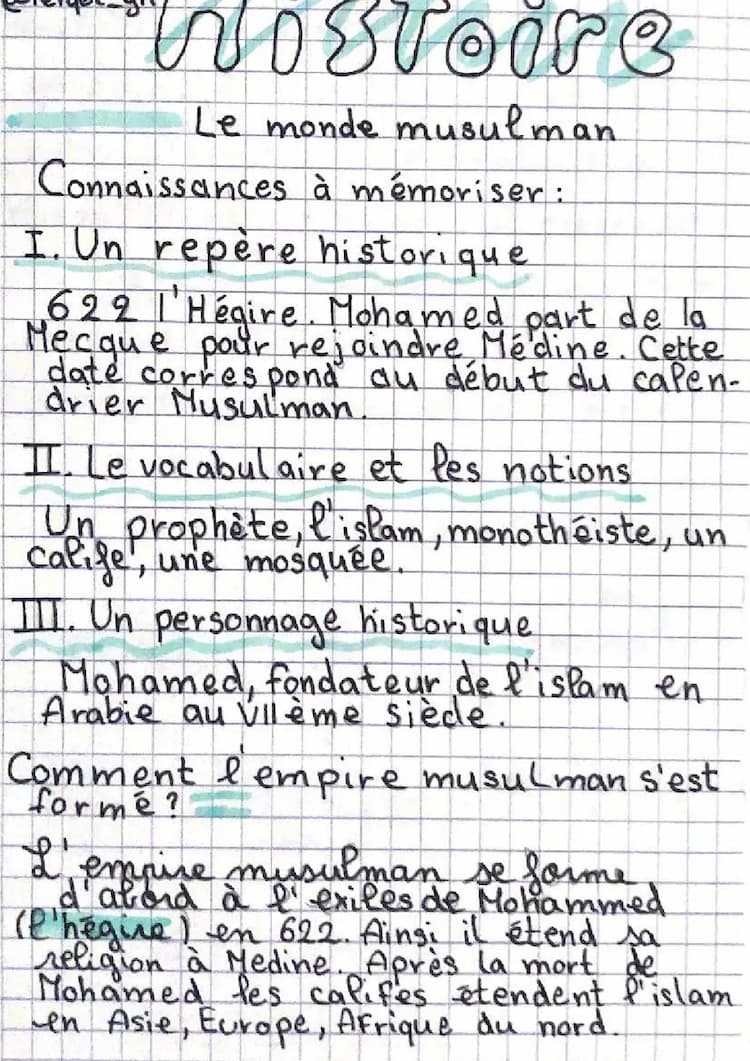 Histoire
Le monde musulman
Connaissances à mémoriser :
I. Un repère historique
622 l'Hégire. Mohamed part de la
Mecque pour rejoindre Médine. Cette
date correspond au début du calen-
drier Musulman.
II. Le vocabulaire et les notions
Un prophète, l'islam, monothéiste, un
calife, une mosquée.
III. Un personnage historique
Mohamed, fondateur de l'islam en
Arabie au VIIème siècle.
Comment l'empire musulman s'est
formé ?
L'empire musulman se forme
d'abord à l'exiles de Mohammed
(l'hégire) en 622. Ainsi il étend sa
religion à Medine. Après la mort de
Mohamed les califes étendent l'islam
en Asie, Europe, Afrique du nord.